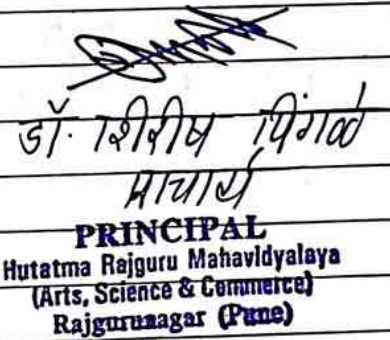 डॉ. शिरीष पिंगळे
प्राचार्य
PRINCIPAL
Hutatma Rajguru Mahavidyalaya
(Arts, Science & Commerce)
Rajgurunagar (Pune)